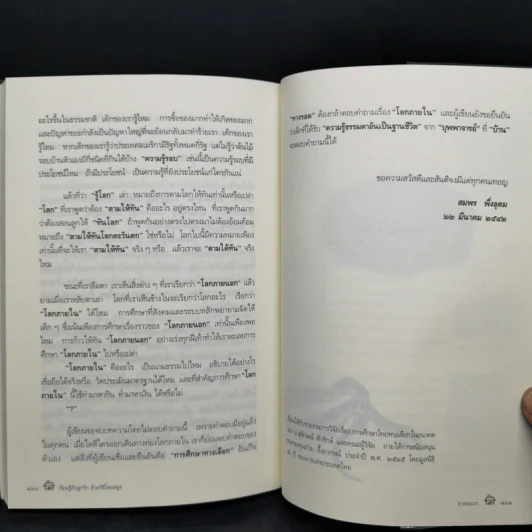 อะไรขึ้นในธรรมชาติ เด็กของเรารู้ไหม การซื้อของมากทำให้เกิดของมาก
และปัญหาขยะกำลังเป็นปัญหาใหญ่ที่จะย้อนกลับมาทำร้ายเรา เด็กของเรา
รู้ไหม หากเด็กของเรารู้ว่าประเทศอเมริกามีรัฐทั้งหมดกี่รัฐ แต่ไม่รู้ว่าต้นไม้
รอบบ้านตัวเองมีกี่ชนิดที่กินได้บ้าง "ความรู้รอบ" เช่นนี้เป็นความรู้รอบที่มี
ประโยชน์ไหม ถ้ามีประโยชน์ เป็นความรู้ที่ยังประโยชน์แก่ใครกันแน่
แล้วที่ว่า "รู้โลก" เล่า หมายถึงการตามโลกให้ทันเท่านั้นหรือเปล่า
"โลก" ที่เราพูดว่าต้อง "ตามให้ทัน" คืออะไร อยู่ตรงไหน ที่เราพูดกันมาก
ว่าต้องสอนลูกให้ "ทันโลก" ถ้าพูดกันอย่างตรงไปตรงมาไม่ต้องอ้อมค้อม
หมายถึง "ตามให้ทันโลกตะวันตก" ใช่หรือไม่ โลกใบนี้มีความหมายเพียง
เท่านั้นที่จะให้เรา "ตามให้ทัน" จริง ๆ หรือ แล้วเราจะ "ตามให้ทัน" จริง
ไหม
ขณะที่เราลืมตา เราเห็นสิ่งต่าง ๆ ที่เราเรียกว่า "โลกภายนอก" แล้ว
ยามเมื่อเราหลับตาเล่า โลกที่เราเห็นข้างในจะเรียกว่าโลกอะไร เรียกว่า
"โลกภายใน" ได้ไหม การศึกษาที่สังคมและระบบหลักพยายามจัดให้
เด็ก ๆ ซึ่งเน้นเพียงการศึกษาเรื่องราวของ "โลกภายนอก" เท่านั้นเพียงพอ
ไหม การก้าวให้ทัน "โลกภายนอก" อย่างเร่งทุกฝีเท้าทำให้เราละเลยการ
ศึกษา "โลกภายใน" ไปหรือเปล่า
"โลกภายใน" คืออะไร เป็นนามธรรมไปไหม อธิบายได้อย่างไร
เชื่อถือได้จริงหรือ วัดประเมินมาตรฐานได้ไหม และที่สำคัญการศึกษา "โลก
ภายใน" นี้ใช้ทำมาหากิน ทำมาหาเงิน ได้หรือไม่
"?"
ผู้เขียนขอจบบทความโดยไม่ตอบคำถามนี้ เพราะคำตอบมีอยู่แล้ว
ในทุกคน เมื่อใดที่ใครออกเดินทางท่องโลกภายใน เขาก็ย่อมพบคำตอบของ
ตัวเอง แต่สิ่งที่ผู้เขียนเชื่อและยืนยันคือ "การศึกษาทางเลือก" อันเป็น
"ทางรอด" ต้องกล้าตอบคำถามเรื่อง "โลกภายใน" และผู้เขียนยังขอยืนยัน
ว่าเด็กที่ได้รับ "ความรู้ธรรมดาอันเป็นฐานชีวิต" จาก "บุพพาจารย์" ที่ "บ้าน"
จะตอบคำถามนี้ได้
ขอความสวัสดีและสันติจงมีแด่ทุกคนเทอญ
สมพร พึ่งอุดม
๒๒ มีนาคม ๒๕๔๒